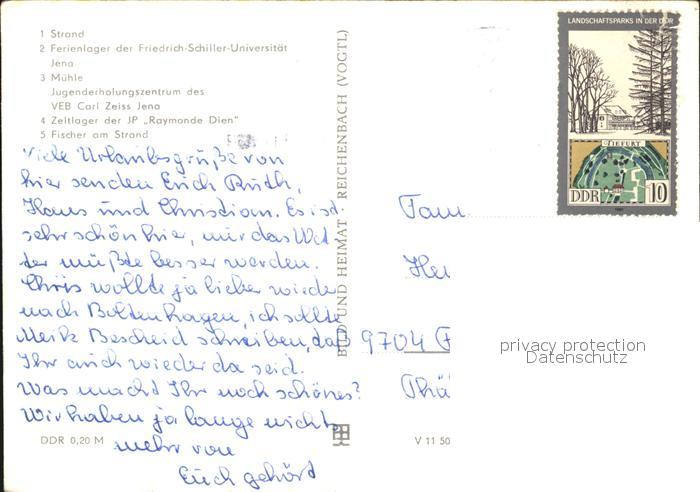 1 Strand
2 Ferienlager der Friedrich-Schiller-Universität
Jena
3 Mühle
Jugenderholungszentrum des
VEB Carl Zeiss Jena
4 Zeltlager der JP „Raymonde Dien"
5 Fischer am Strand
Viele Urlaubsgrüße von
hier senden Euch Ruth,
Hans und Christian. Es ist
sehr schön hier, nur das Wet-
ter müßte besser werden.
Chris wollte ja lieber wieder
nach Boltenhagen, ich sollte
Meik Bescheid schreiben, daß
Ihr auch wieder da seid.
Was macht Ihr noch schönes?
Wir haben ja lange nichts
mehr von
Euch gehört
DDR 0,20 M
BILD UND HEIMAT REICHENBACH (VOGTL)
V 11 50
LANDSCHAFTSPARKS IN DER DDR
TIEFURT
DDR 10
Fam
Hei
9704 F
Thä
privacy protection
Datenschutz